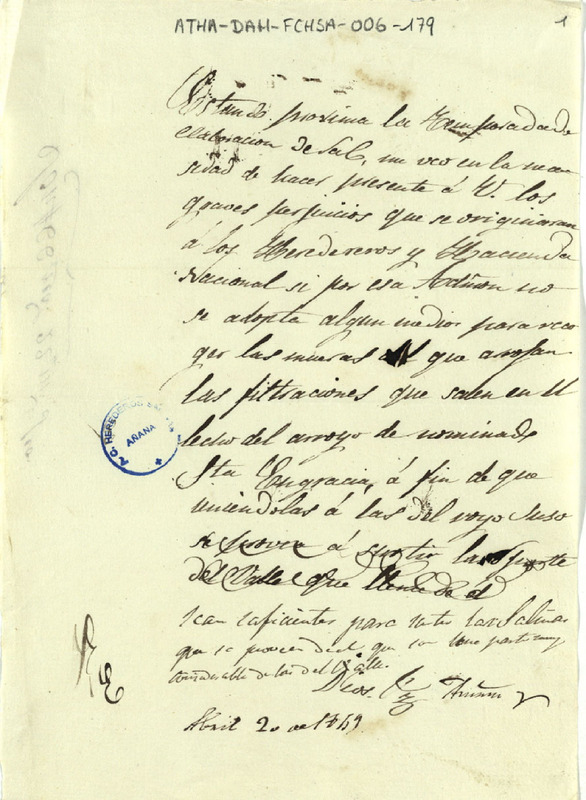 ATHA-DAH-FCHSA-006-179
1
Estando proxima la Temporada de
elaboracion de Sal, me veo en la nece
sidad de hacer presente á V. los
graves perjuicios que se originaran
á los Heredereros y Hacienda
Nacional si por esa Admon no
se adopta algun medio para reco
ger las mueras que arrojan
las filtraciones que salen en el
lecho del arroyo denominado
Sta Engracia, á fin de que
uniendolas á las del royo Suso
á surtir la parte
del Valle que
sean suficientes para surtir las Salinas
que se proveen de el que son una parte muy
considerable de las del Valle.
Dios
Abril 20 de 1869
HEREDEROS
AÑANA